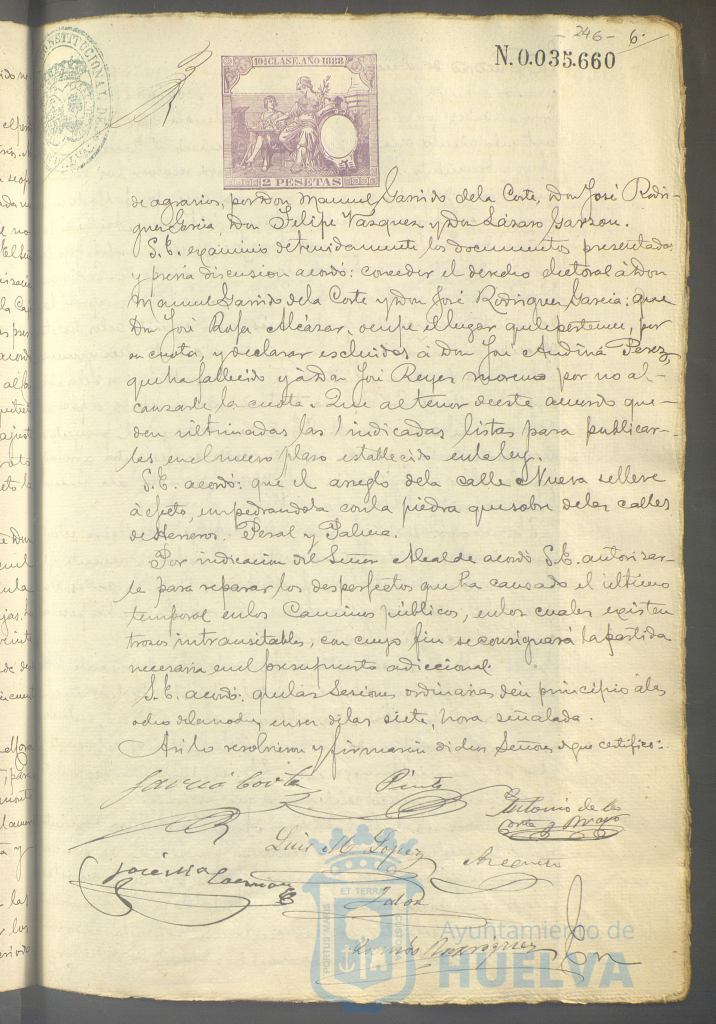 - 246 - 6.
N.0.035.660
CONSTITUCIONAL DE
10ª CLASE. AÑO 1888
2 PESETAS
de agrarios, por Don Manuel Garrido de la Corte, Don José Rodri-
guez Garcia, Don Felipe Vazquez y Don Lázaro Garzon.
S.E. examinó detenidamente los documentos presentados
y prévia discusion acordó: conceder el derecho electoral á Don
Manuel Garrido de la Corte y Don José Rodriguez Garcia; que
Don José Rafa Alcázar, ocupe el lugar que le pertenece, por
su cuota, y declarar escluidos á Don José Andina Perez,
que ha fallecido y á Don José Reyes Moreno por no al-
canzarle la cuota. Que al tenor de este acuerdo que-
den ultimadas las indicadas listas para publicar-
las en el nuevo plazo establecido en la ley.
S.E. acordó: que el arreglo de la calle Nueva se lleve
á efecto, empedrandola con la piedra que sobre de las calles
de Herreros, Peral y
Por indicacion del Señor Alcalde acordó S.E. autorizar-
le para reparar los desperfectos que ha causado el último
temporal en los Caminos públicos, en los cuales existen
trozos intransitables, con cuyo fin se consignará la partida
necesaria en el presupuesto adiccional.
S.E. acordó: que las Sesiones ordinarias den principio á las
ocho de la noche, en vez de las siete, hora señalada.
Asi lo resolvieron y firmarán dichos Señores de que certifico:
García Corte
Antonio de la
Corte y Bravo
Luis Mª Lopez
José Mª
Rodriguez
PORTUS MARIS
ET TERRAE
CUSTODIA
Ayuntamiento de
HUELVA